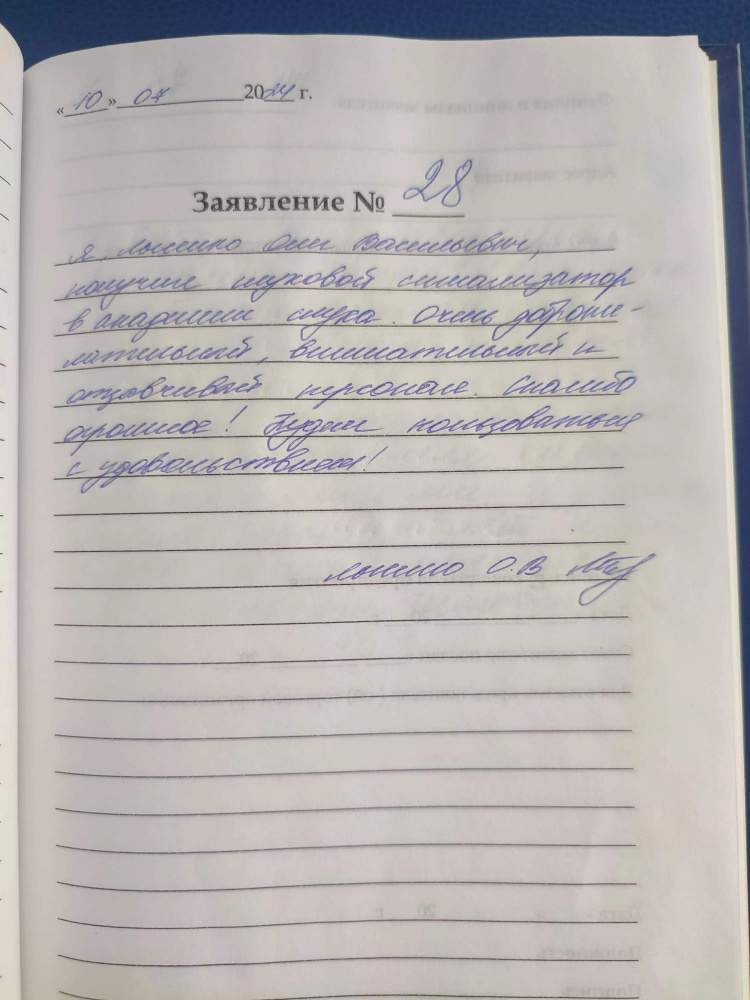 «10» 07 2024 г.
Заявление № 28
Я, Олег Васильевич,
получил слуховой сигнализатор
в академии слуха. Очень доброже-
лательный, внимательный и
отзывчивый персонал. Спасибо
огромное! Будем пользоваться
с удовольствием!
О.В